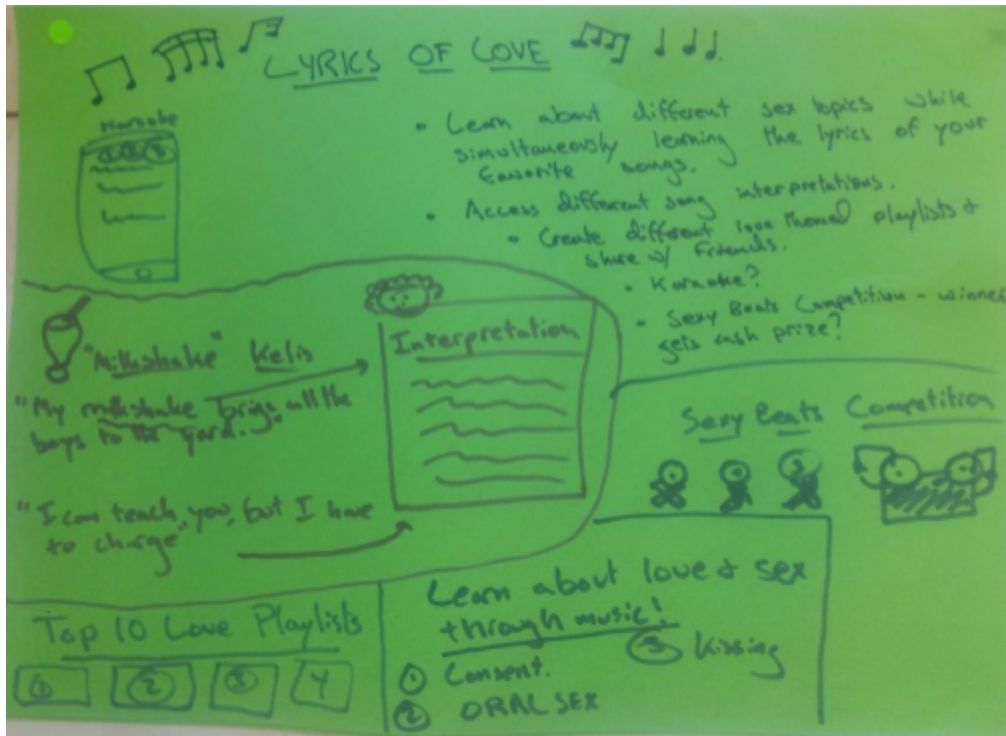 LYRICS OF LOVE
Karaoke
① ② ③
• Learn about different sex topics while
simultaneously learning the lyrics of your
favorite songs.
• Access different song interpretations.
• Create different love themed playlists &
share w/ Friends.
• Karaoke?
• Sexy Beats Competition - winner
gets cash prize?
"Milkshake" Kelis
"My milkshake brigs all the
boys to the yard."
"I can teach you, but I have
to charge"
Interpretation
Sexy Beats Competition
Top 10 Love Playlists
① ② ③ 4
Learn about love & sex
through music!
① Consent.
② ORAL SEX
③ Kissing